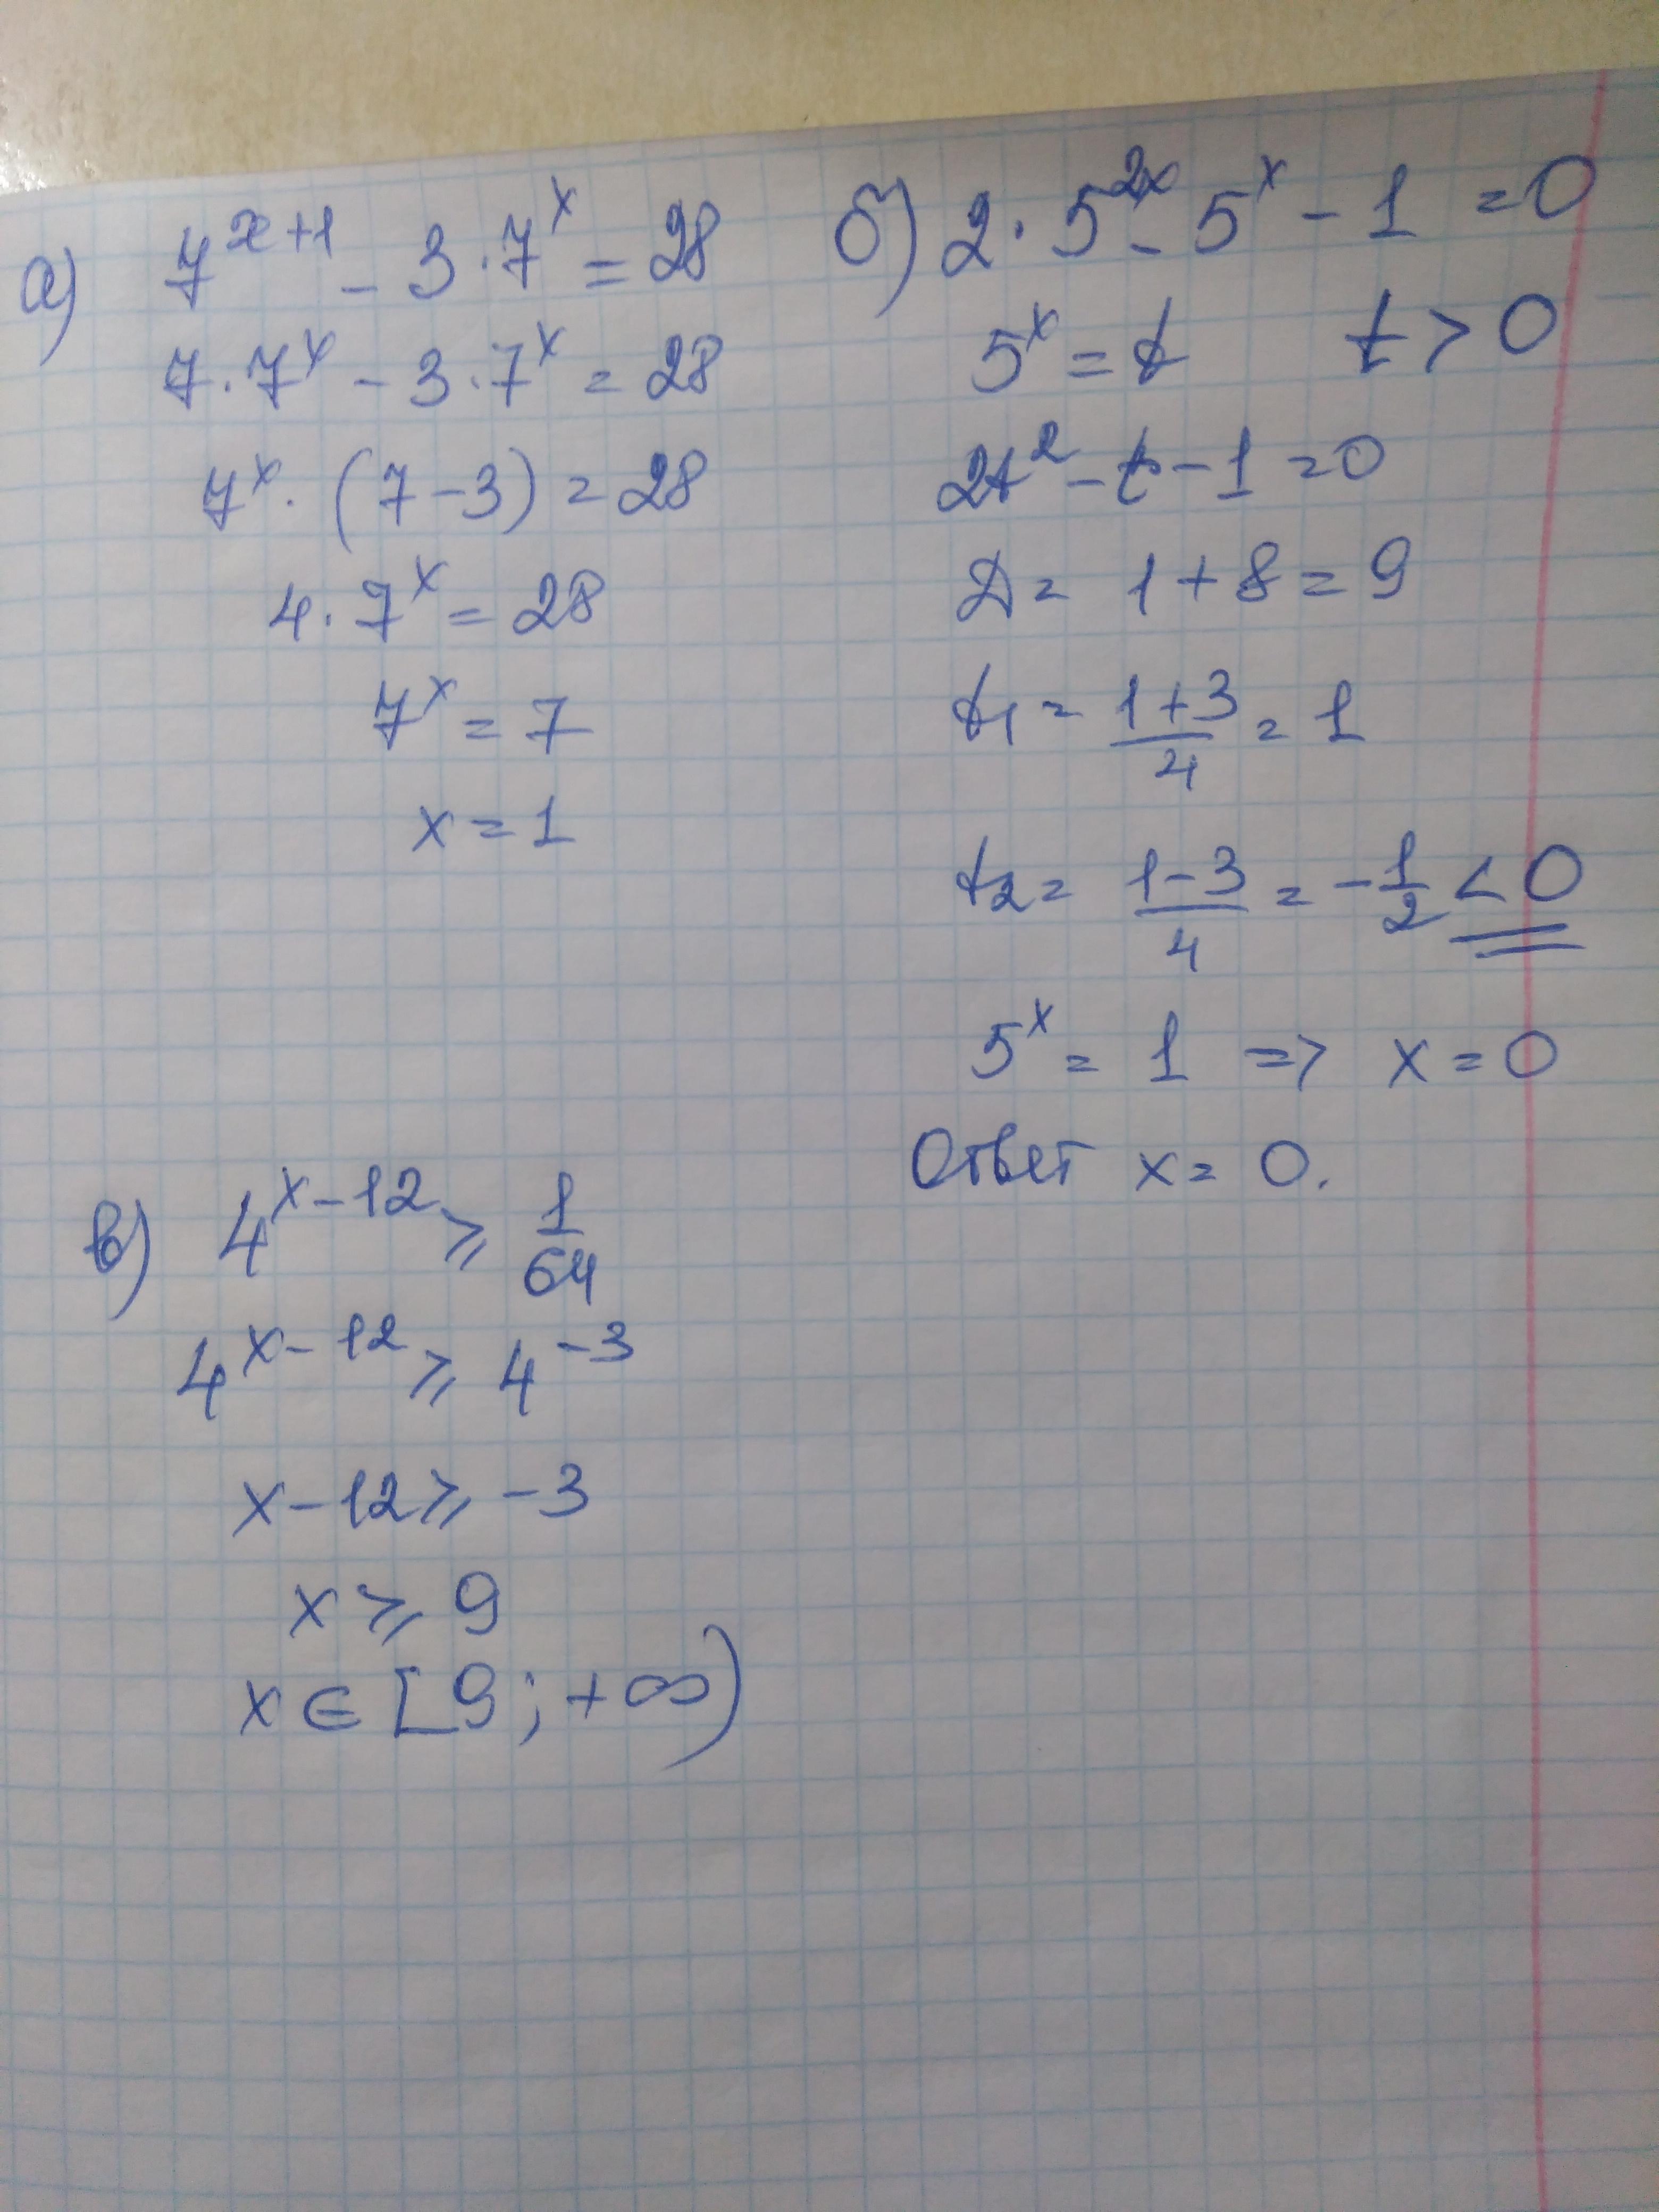 а) 7^{x+1} - 3·7^x = 28
7·7^x - 3·7^x = 28
7^x·(7-3) = 28
4·7^x = 28
7^x = 7
x = 1
б) 2·5^{2x} - 5^x - 1 = 0
5^x = t t > 0
2t^2 - t - 1 = 0
D = 1 + 8 = 9
t_1 = \frac{1+3}{4} = 1
t_2 = \frac{1-3}{4} = -\frac{1}{2} < 0
5^x = 1 => x = 0
Ответ x = 0.
в) 4^{x-12} ⩾ \frac{1}{64}
4^{x-12} ⩾ 4^{-3}
x-12 ⩾ -3
x ⩾ 9
x ∈ [9; +∞)